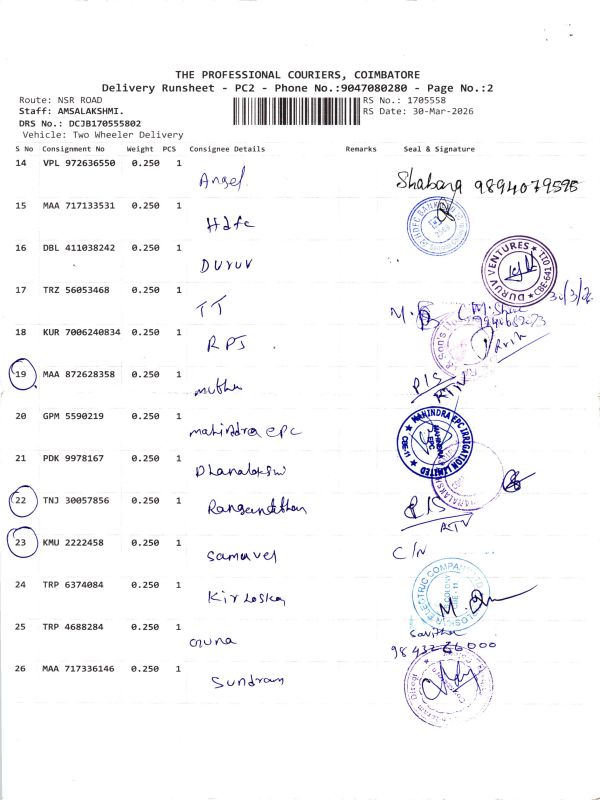 THE PROFESSIONAL COURIERS, COIMBATORE
Delivery Runsheet - PC2 - Phone No.:9047080280 - Page No.:2
Route: NSR ROAD
RS No.: 1705558
Staff: AMSALAKSHMI.
RS Date: 30-Mar-2026
DRS No.: DCJB170555802
Vehicle: Two Wheeler Delivery
S No Consignment No Weight PCS Consignee Details Remarks Seal & Signature
14 VPL 972636550 0.250 1
Angel
15 MAA 717133531 0.250 1
Hdfc
HDFC BANK
16 DBL 411038242 0.250 1
Duruv
DURUV VENTURES
CBE-641 011
17 TRZ 56053468 0.250 1
TT
18 KUR 7006240834 0.250 1
RPS
19 MAA 872628358 0.250 1
muthu
P/S
RTN
20 GPM 5590219 0.250 1
mahindra epc
MAHINDRA EPC IRRIGATION LIMITED
CBE-11
21 PDK 9978167 0.250 1
Dhanalakshmi
22 TNJ 30057856 0.250 1
P/S
RTN
23 KMU 2222458 0.250 1
Samuvel
C/N
24 TRP 6374084 0.250 1
Kirloskar
ELECTRIC COMPANY
25 TRP 4688284 0.250 1
Guna
26 MAA 717336146 0.250 1
Sundram